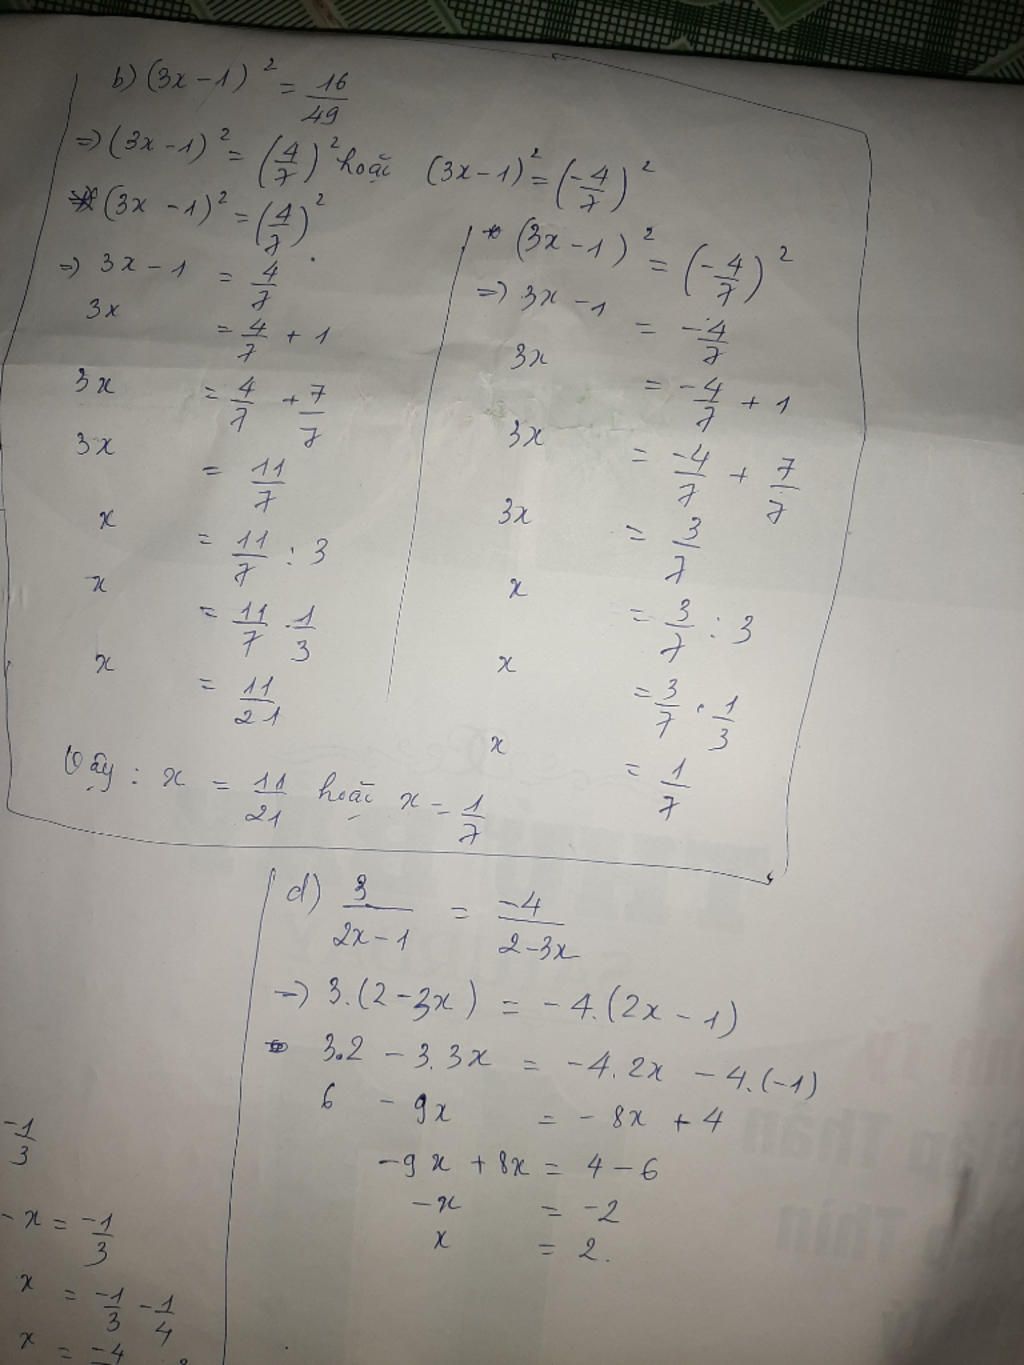 b) (3x - 1)² = 16/49
=> (3x - 1)² = (4/7)² hoặc (3x - 1)² = (-4/7)²
* (3x - 1)² = (4/7)²
=> 3x - 1 = 4/7
3x = 4/7 + 1
3x = 4/7 + 7/7
3x = 11/7
x = 11/7 : 3
x = 11/7 . 1/3
x = 11/21
* (3x - 1)² = (-4/7)²
=> 3x - 1 = -4/7
3x = -4/7 + 1
3x = -4/7 + 7/7
3x = 3/7
x = 3/7 : 3
x = 3/7 . 1/3
x = 1/7
Vậy : x = 11/21 hoặc x = 1/7
d) 3/(2x - 1) = -4/(2 - 3x)
=> 3.(2 - 3x) = -4.(2x - 1)
3.2 - 3.3x = -4.2x - 4.(-1)
6 - 9x = -8x + 4
-9x + 8x = 4 - 6
-x = -2
x = 2.
-1/3
-x = -1/3
x = -1/3 - 1/4
x = -4